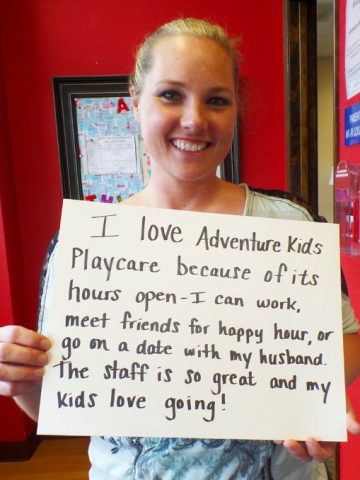 I love Adventure Kids
Playcare because of its
hours open - I can work,
meet friends for happy hour, or
go on a date with my husband.
The staff is so great and my
kids love going!